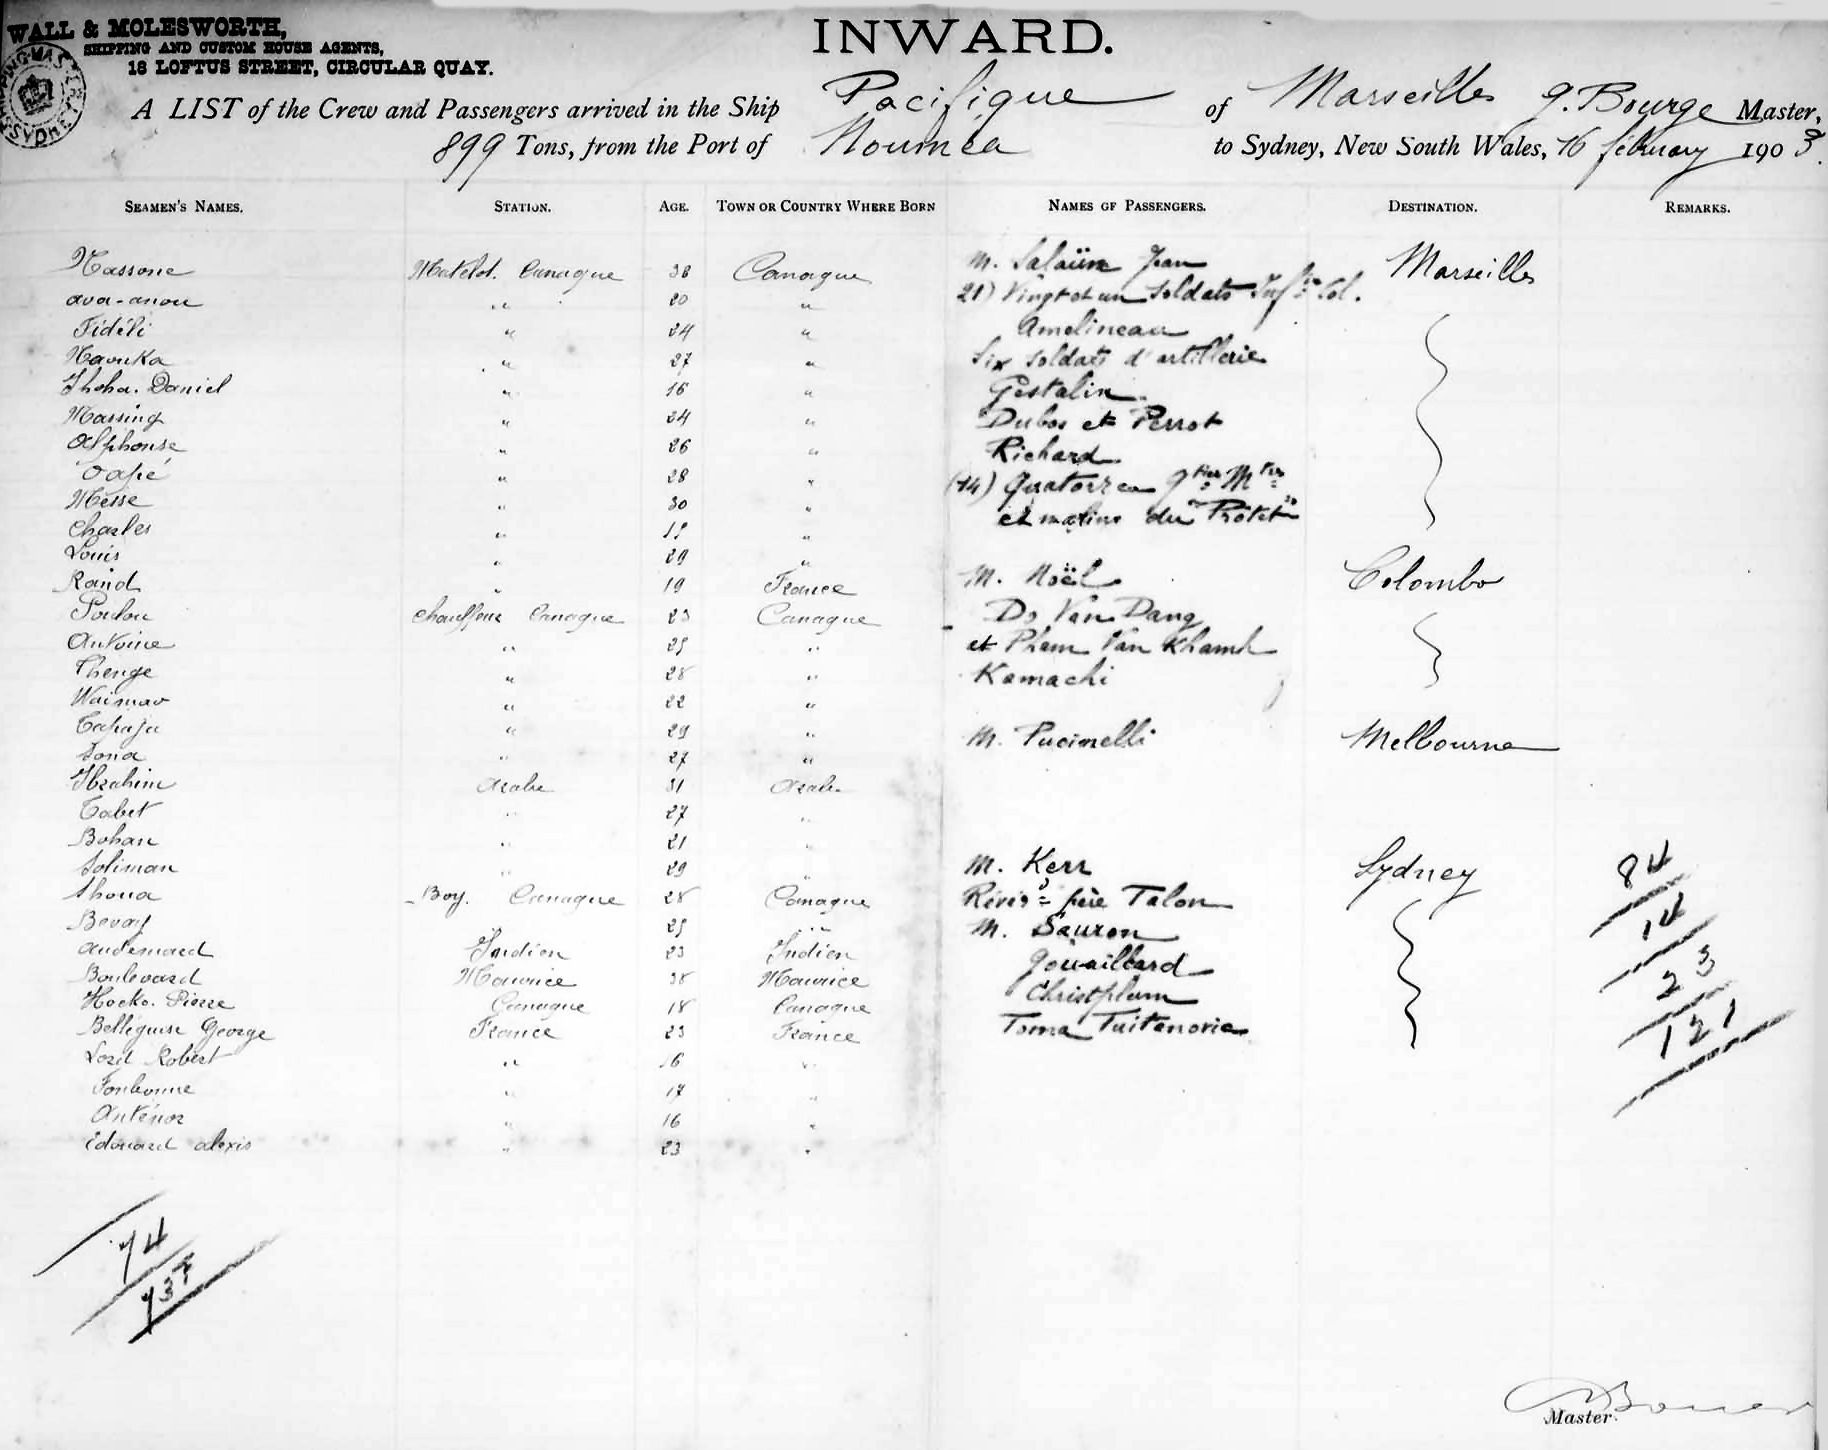 WALL & MOLESWORTH,
SHIPPING AND CUSTOM HOUSE AGENTS,
18 LOFTUS STREET, CIRCULAR QUAY.
INWARD.
A LIST of the Crew and Passengers arrived in the Ship Pacifique of Marseille G. Bourge Master,
899 Tons, from the Port of Noumea to Sydney, New South Wales, 16 february 1903.
SEAMEN'S NAMES. STATION. AGE. TOWN OR COUNTRY WHERE BORN NAMES OF PASSENGERS. DESTINATION. REMARKS.
Nassone Matelot. Canaque 38 Canaque
ava-anou " 20 "
Fidéli " 24 "
Navuka " 27 "
Thoha. Daniel " 16 "
Massing " 24 "
Alphonse " 26 "
Oapé " 28 "
Messe " 30 "
Charles " "
Louis " 29 "
Raind " 19 France
Poulou Chauffeur Canaque 23 Canaque
Antoine " 25 "
Thenge " 28 "
Waimao " 22 "
Capaja " 29 "
Sona " 27 "
Ibrahim Arabe 31 Arabe
Cabet " 27 "
Bohan " 21 "
Soliman " 29 "
Shoua Boy. Canaque 28 Canaque
" 25 "
Audemard Indien 23 Indien
Boulevard Maurice 38 Maurice
Hocko. Pierre Canaque 18 Canaque
Belléguise George France 23 France
Lord Robert " 16 "
Fonbonne " 17 "
Anténor " 16 "
Edouard alexis " 23 "
74
737
M. Salaün Jean Marseille
21) Vingt et un Soldats Inf.rie Col.
Amelineau
Six soldats d'artillerie
Gestalin
Dubos et Perrot
Richard
(14) Quatorze Qtier Mtres
et marins du "Protêt"
M. Noël Colombo
Do Van Dang
et Pham Van Khamh
Kamachi
M. Pucinelli Melbourne
M. Kerr Sydney
Révd père Talon
M. Sauron
Gouaillard
Christplum
Toma Tuitenorie
84
14
23
121
Master.